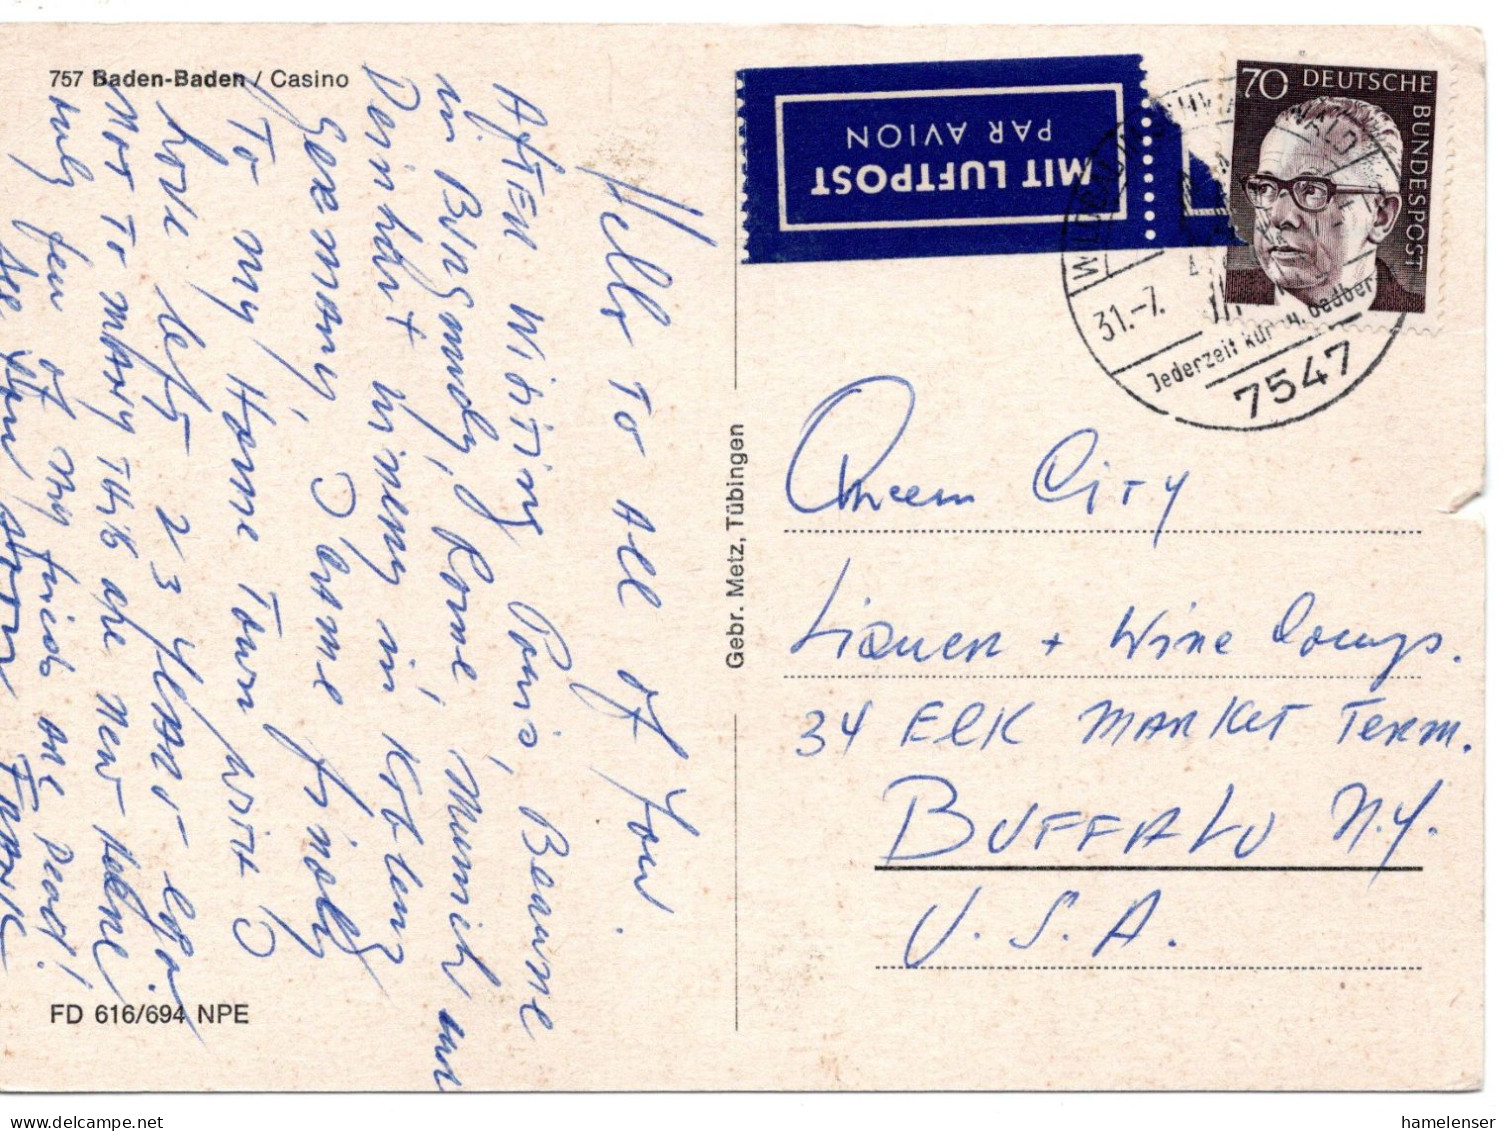 757 Baden-Baden / Casino
Hello To All of You.
After Visiting Paris, Beaune
in Burgundy, Rome, Munich and
Deinhart winery in Koblenz
Germany, I came finaly
To my Home Town with I
have left 23 years ago.
Not to many th are New Here
only few of my friends are Dead!
See You Soon Frank
FD 616/694 NPE
Gebr. Metz, Tübingen
MIT LUFTPOST
PAR AVION
70 DEUTSCHE BUNDESPOST
WILDBAD SCHWARZWALD
31.-7.
Jederzeit kur
7547
Queen City
Liquer + Wine Comps.
34 Elk Market Term.
Buffalo N.Y.
U.S.A.
hamelenser